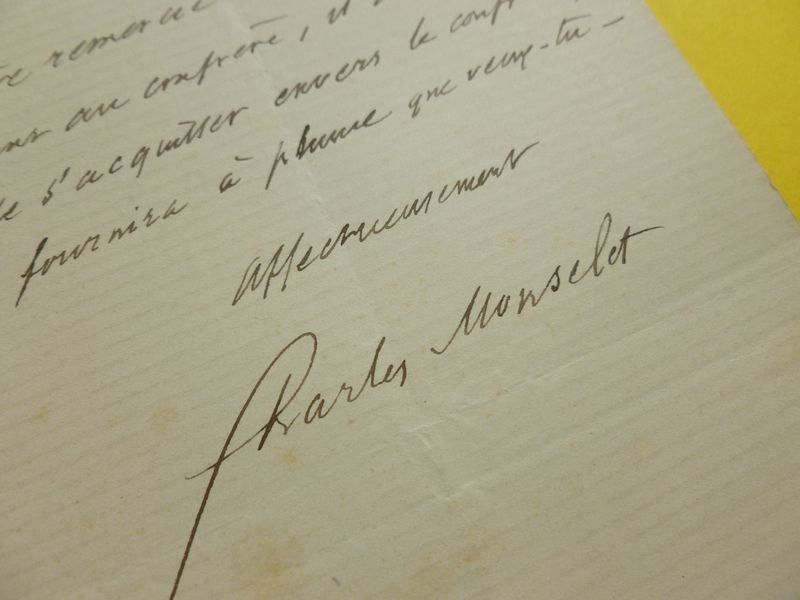 remercie
au confrère, il
s'acquitter envers le confr
fournira à plume que veux-tu -
Affectueusement
Charles Monselet